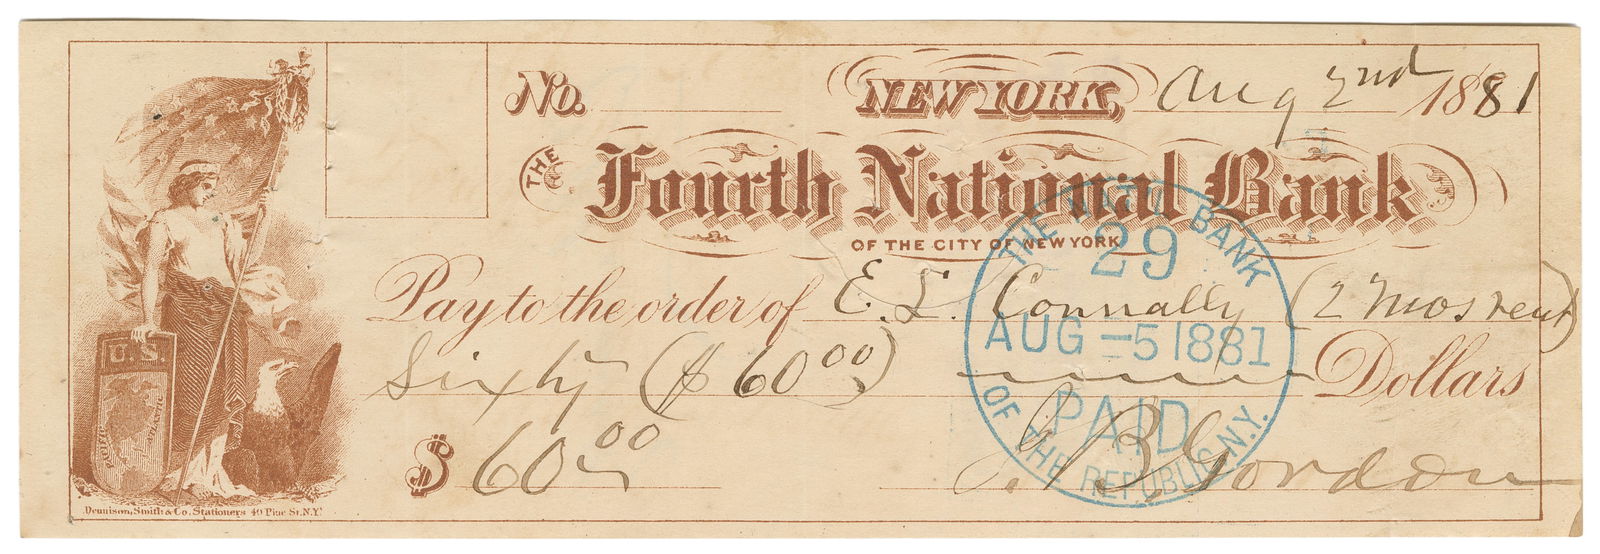 No. NEW YORK, Aug 2nd 1881
THE Fourth National Bank
OF THE CITY OF NEW YORK
Pay to the order of E. L. Connally (2 mos rent)
Sixty ($ 60 00) Dollars
$ 60 00 J. B. Gordon
THE NAT'L BANK
29
AUG -5 1881
PAID
OF THE REPUBLIC N.Y.
U.S.
PACIFIC
ATLANTIC
Dennison, Smith & Co. Stationers 40 Pine St. N.Y.